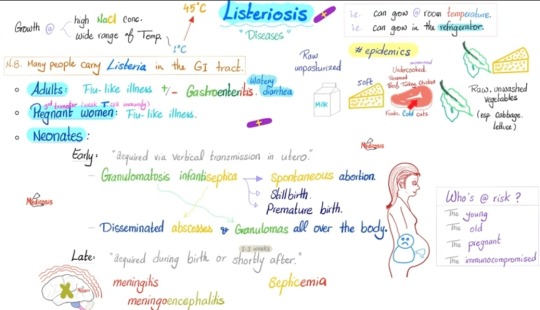 Listeriosis
"Diseases"
Growth @
high NaCl conc.
wide range of Temp.
45°C
1°C
i.e. can gow @ room temperature.
i.e. can gow in the refrigerator.
# epidemics
N.B. Many people carry Listeria in the GI tract.
Raw
unpasturized
Milk
soft
Undercooked
Beef, Turkey, Chicken
Cold cuts
Raw, unwashed
vegetables
(esp. cabbage,
lettuce)
Adults: Flu-like illness +/- Gastroenteritis.
Watery
diarrhea
Pregnant women: Flu-like illness.
Neonates:
Early: "acquired via vertical transmission in utero."
- Granulomatosis infantiseptica → Spontaneous abortion.
Stillbirth.
Premature birth.
- Disseminated abscesses & Granulomas all over the body.
Medicosis
Medicosis
Late: "acquired during birth or shortly after."
2-3 weeks
meningitis
meningoencephalitis
Septicemia
Who's @ risk?
The young
The old
The pregnant
The immunocompromised